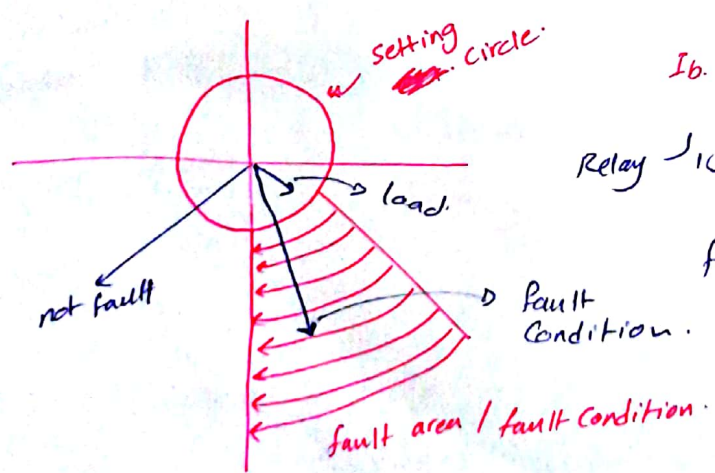 setting
circle.
Ib.
Relay
load.
not fault
fault
Condition.
fault area / fault Condition.